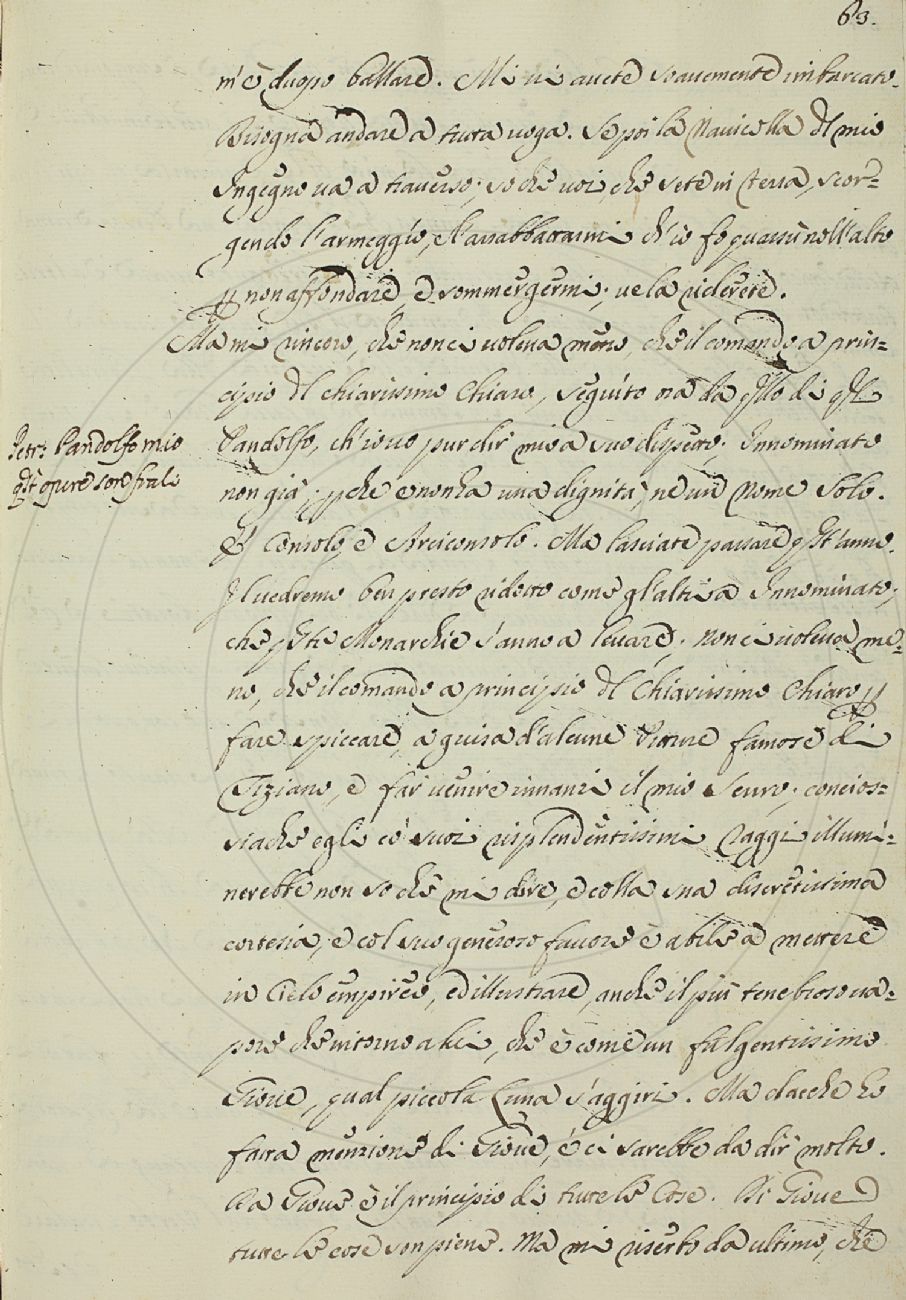 63.
m'è duopo ballare. Mi ci avete soavemente imbarcato.
Bisogna andare a tutta voga. Se poi la Navicella dl mio
Ingegno va a traverso; so che voi, che sete in terra, scor=
gendo l'armeggio, e l'arrabbattarmi ch'io fo quassù nell'alto
p non affondare, e sommergermi, ve la riderete.
Ma mi rincoro, che non ci voleva meno, che il comando a prin=
cipio dl chiarissimo Chiaro, seguito ora da qllo di qsl
Petr: Pandolfo mio
qst' opure son frali
Pandolfo, ch'io vo pur dir mio a suo dispetto, Innominato
non già, pche e' non ha una dignità, ne un Nome solo.
È Consolo, e Arciconsolo. Ma lasciate passare qst'anno.
Il vedremo ben presto ridotto come gl'altri a Innominato,
che qste Monarchie s'anno a levare, non ci voleva me=
no, che il comando a principio dl Chiarissimo Chiaro p
fare spiccare, a guisa d'alcune Pitture famose di
Tiziano, e far venire innanzi il mio scuro; concios=
siachè egli co' suoi risplendentissimi Raggi illumi=
nerebbe non so che mi dire, e colla sua discretissima
cortesia, e col suo generoso favore è abile a mettere
in Cielo empireo, ed illustrare, anche il più tenebroso va=
pore che intorno a lui, che è come un fulgentissimo
Giove, qual piccola Luna s'aggiri. Ma dacche ho
fatta menzione di Giove, e' ci sarebbe da dir molto.
Da Giove è il principio di tutte le Cose. Di Giove
tutte le cose son piene. Ma mi riserbo da ultimo, che